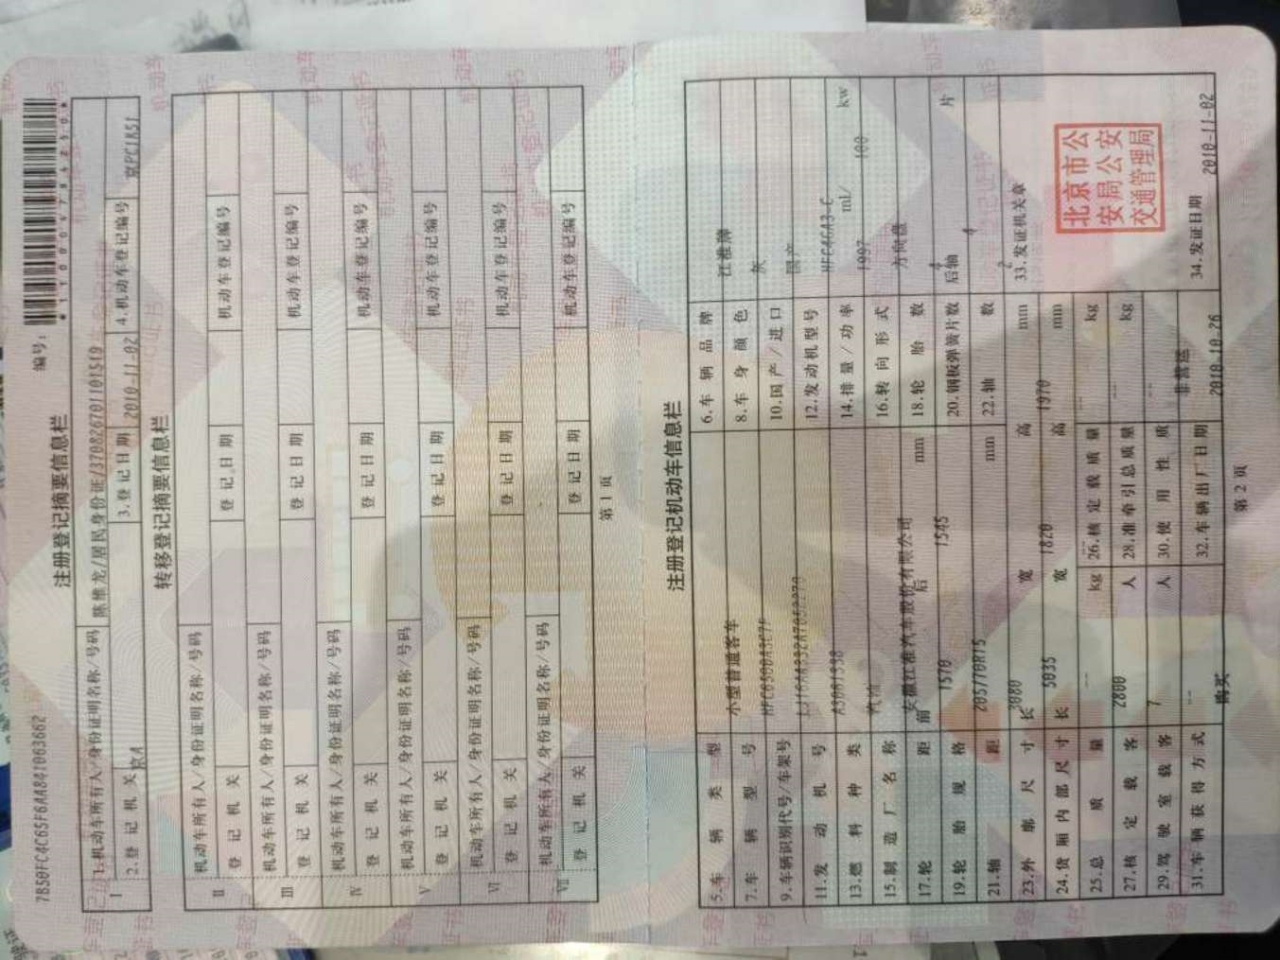 7B50FC4C65F6AA84J063662
编号:
注册登记摘要信息栏
I 1.机动车所有人/身份证明名称/号码 陈维龙/居民身份证/370826701101519
2.登记机关 京A 3.登记日期 2010-11-02 4.机动车登记编号 京PC1A51
转移登记摘要信息栏
II 机动车所有人/身份证明名称/号码
登记机关 登记日期 机动车登记编号
III 机动车所有人/身份证明名称/号码
登记机关 登记日期 机动车登记编号
IV 机动车所有人/身份证明名称/号码
登记机关 登记日期 机动车登记编号
V 机动车所有人/身份证明名称/号码
登记机关 登记日期 机动车登记编号
VI 机动车所有人/身份证明名称/号码
登记机关 登记日期 机动车登记编号
VII 机动车所有人/身份证明名称/号码
登记机关 登记日期 机动车登记编号
第1页
注册登记机动车信息栏
5.车辆类型 小型普通客车 6.车辆品牌 江淮牌
7.车辆型号 HFC6500A3C7F 8.车身颜色 灰
9.车辆识别代号/车架号 10.国产/进口 国产
11.发动机号 A3081338 12.发动机型号 HFC4GA3-C
13.燃料种类 汽油 14.排量/功率 1997 ml/ 100 kw
15.制造厂名称 安徽江淮汽车股份有限公司 16.转向形式 方向盘
17.轮距 前 1570 后 1545 mm 18.轮胎数 4
19.轮胎规格 205/70R15 20.钢板弹簧片数 后轴 4 片
21.轴距 3080 mm 22.轴数 2
23.外廓尺寸 长 5035 宽 1820 高 1970 mm 33.发证机关章
24.货厢内部尺寸 长 宽 高 mm
25.总质量 2800 kg 26.核定载质量 -- kg
27.核定载客 7 人 28.准牵引总质量 -- kg
29.驾驶室载客 -- 人 30.使用性质 非营运
31.车辆获得方式 购买 32.车辆出厂日期 2010-10-26 34.发证日期 2010-11-02
北京市公
安局公安
交通管理局
第2页